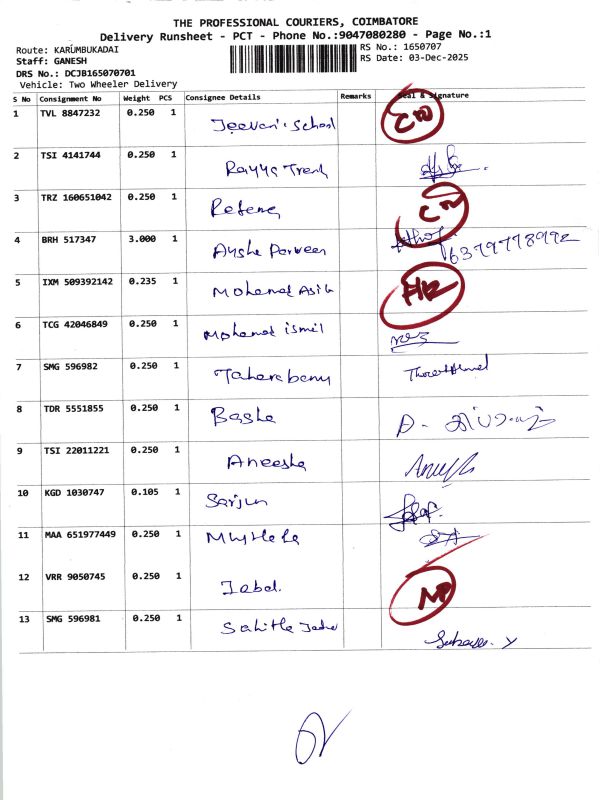 THE PROFESSIONAL COURIERS, COIMBATORE
Delivery Runsheet - PCT - Phone No.:9047080280 - Page No.:1
Route: KARUMBUKADAI RS No.: 1650707
Staff: GANESH RS Date: 03-Dec-2025
DRS No.: DCJB165070701
Vehicle: Two Wheeler Delivery
S No Consignment No Weight PCS Consignee Details Remarks Seal & Signature
1 TVL 8847232 0.250 1 Jeevan's School
2 TSI 4141744 0.250 1
3 TRZ 160651042 0.250 1
4 BRH 517347 3.000 1 Aysha Parveen 6379778992
5 IXM 509392142 0.235 1 Mohamed Asik
6 TCG 42046849 0.250 1 Mohamed ismil
7 SMG 596982 0.250 1
8 TDR 5551855 0.250 1 Basha
9 TSI 22011221 0.250 1 Aneesha
10 KGD 1030747 0.105 1 Sarjun
11 MAA 651977449 0.250 1
12 VRR 9050745 0.250 1
13 SMG 596981 0.250 1